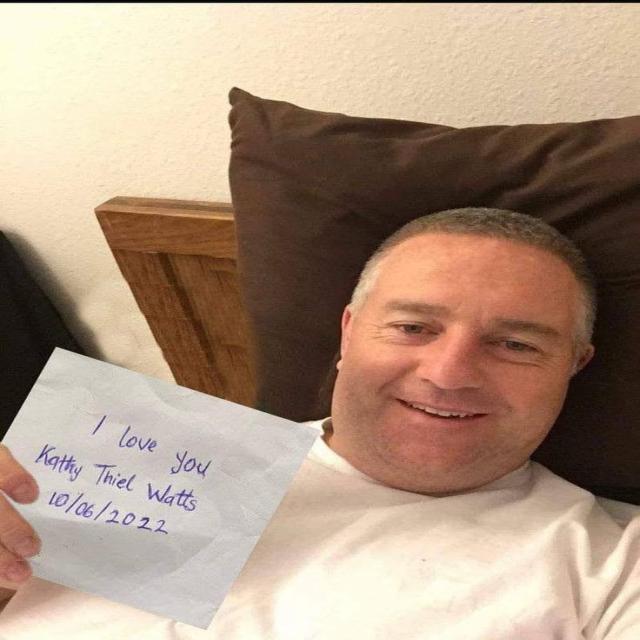 I love you
Kathy Thiel Watts
10/06/2022